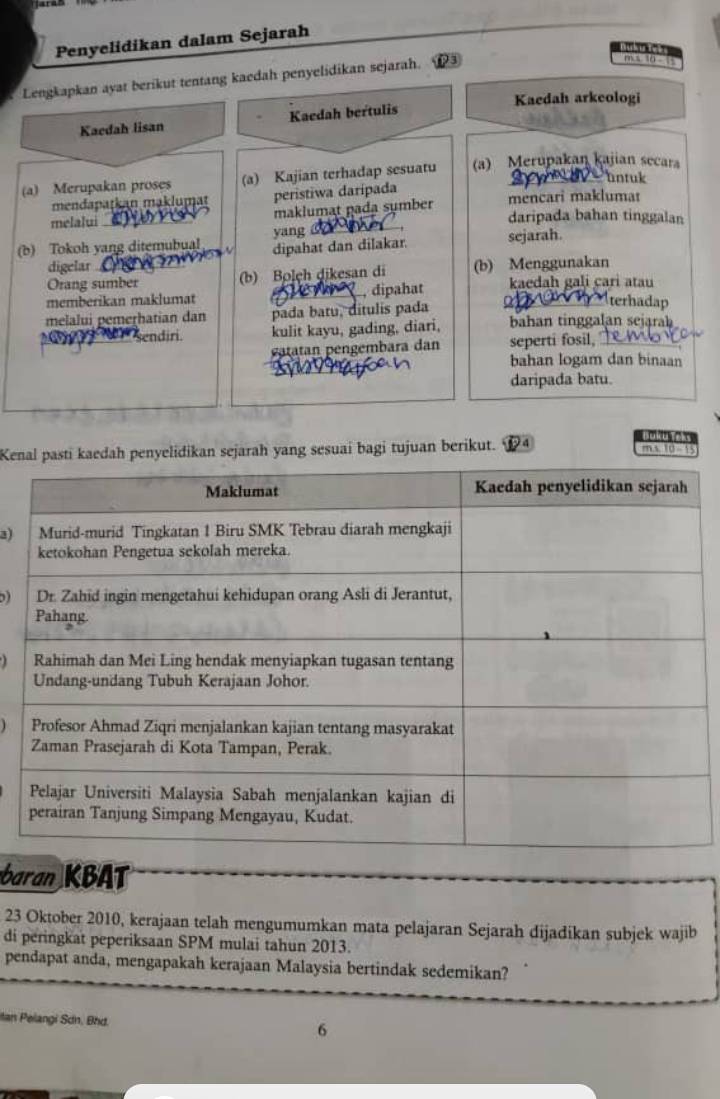 Penyelidikan dalam Sejarah
Buku Teks
m.s. 10 - 15
Lengkapkan ayat berikut tentang kaedah penyelidikan sejarah. 3
Kaedah lisan
(a) Merupakan proses
mendapatkan maklumat
melalui
(b) Tokoh yang ditemubual
digelar
Orang sumber
memberikan maklumat
melalui pemerhatian dan
sendiri.
Kaedah bertulis
(a) Kajian terhadap sesuatu
peristiwa daripada
maklumat pada sumber
yang
dipahat dan dilakar.
(b) Boleh dikesan di
, dipahat
pada batu, ditulis pada
kulit kayu, gading, diari,
catatan pengembara dan
Kaedah arkeologi
(a) Merupakan kajian secara
untuk
mencari maklumat
daripada bahan tinggalan
sejarah.
(b) Menggunakan
kaedah gali cari atau
terhadap
bahan tinggalan sejarah
seperti fosil, tembikar
bahan logam dan binaan
daripada batu.
Kenal pasti kaedah penyelidikan sejarah yang sesuai bagi tujuan berikut. 4
Buku Teks
m.s. 10 - 15
Maklumat Kaedah penyelidikan sejarah
a) Murid-murid Tingkatan 1 Biru SMK Tebrau diarah mengkaji
ketokohan Pengetua sekolah mereka.
b) Dr. Zahid ingin mengetahui kehidupan orang Asli di Jerantut,
Pahang.
) Rahimah dan Mei Ling hendak menyiapkan tugasan tentang
Undang-undang Tubuh Kerajaan Johor.
) Profesor Ahmad Ziqri menjalankan kajian tentang masyarakat
Zaman Prasejarah di Kota Tampan, Perak.
Pelajar Universiti Malaysia Sabah menjalankan kajian di
perairan Tanjung Simpang Mengayau, Kudat.
baran KBAT
23 Oktober 2010, kerajaan telah mengumumkan mata pelajaran Sejarah dijadikan subjek wajib
di peringkat peperiksaan SPM mulai tahun 2013.
pendapat anda, mengapakah kerajaan Malaysia bertindak sedemikian?
Pelangi Sdn. Bhd.
6